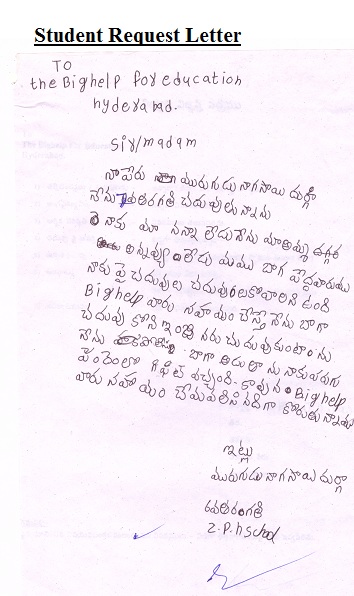 Student Request Letter
TO
the Bighelp for education
hyderabad.
Sir/madam
నాపేరు మురుగుడు నాగసాయి దుర్గా
నేను 7వతరగతి చదువుతున్నాను
నాకు మా నాన్నా లేదు నేను మాఅమ్మ దగ్గర
లేదు మేము బాగ పేదవారుము
నాకు పై చదువులు చదువుకోవాలని ఉంది
Bighelp వారు సహాయం చేస్తే నేను బాగా
చదువు కోని చదుకుంటాను
నేను బాగా ఆడుతాను నాకు పరుగు
పందెంలో గిఫ్ట్ వచ్చింది. కావున Bighelp
వారు సహాయం చేయవలసినదిగా కోరుతున్నాను
ఇట్లు
మురుగుడు నాగసాయి దుర్గా
తరంగతి
Z.P.h School